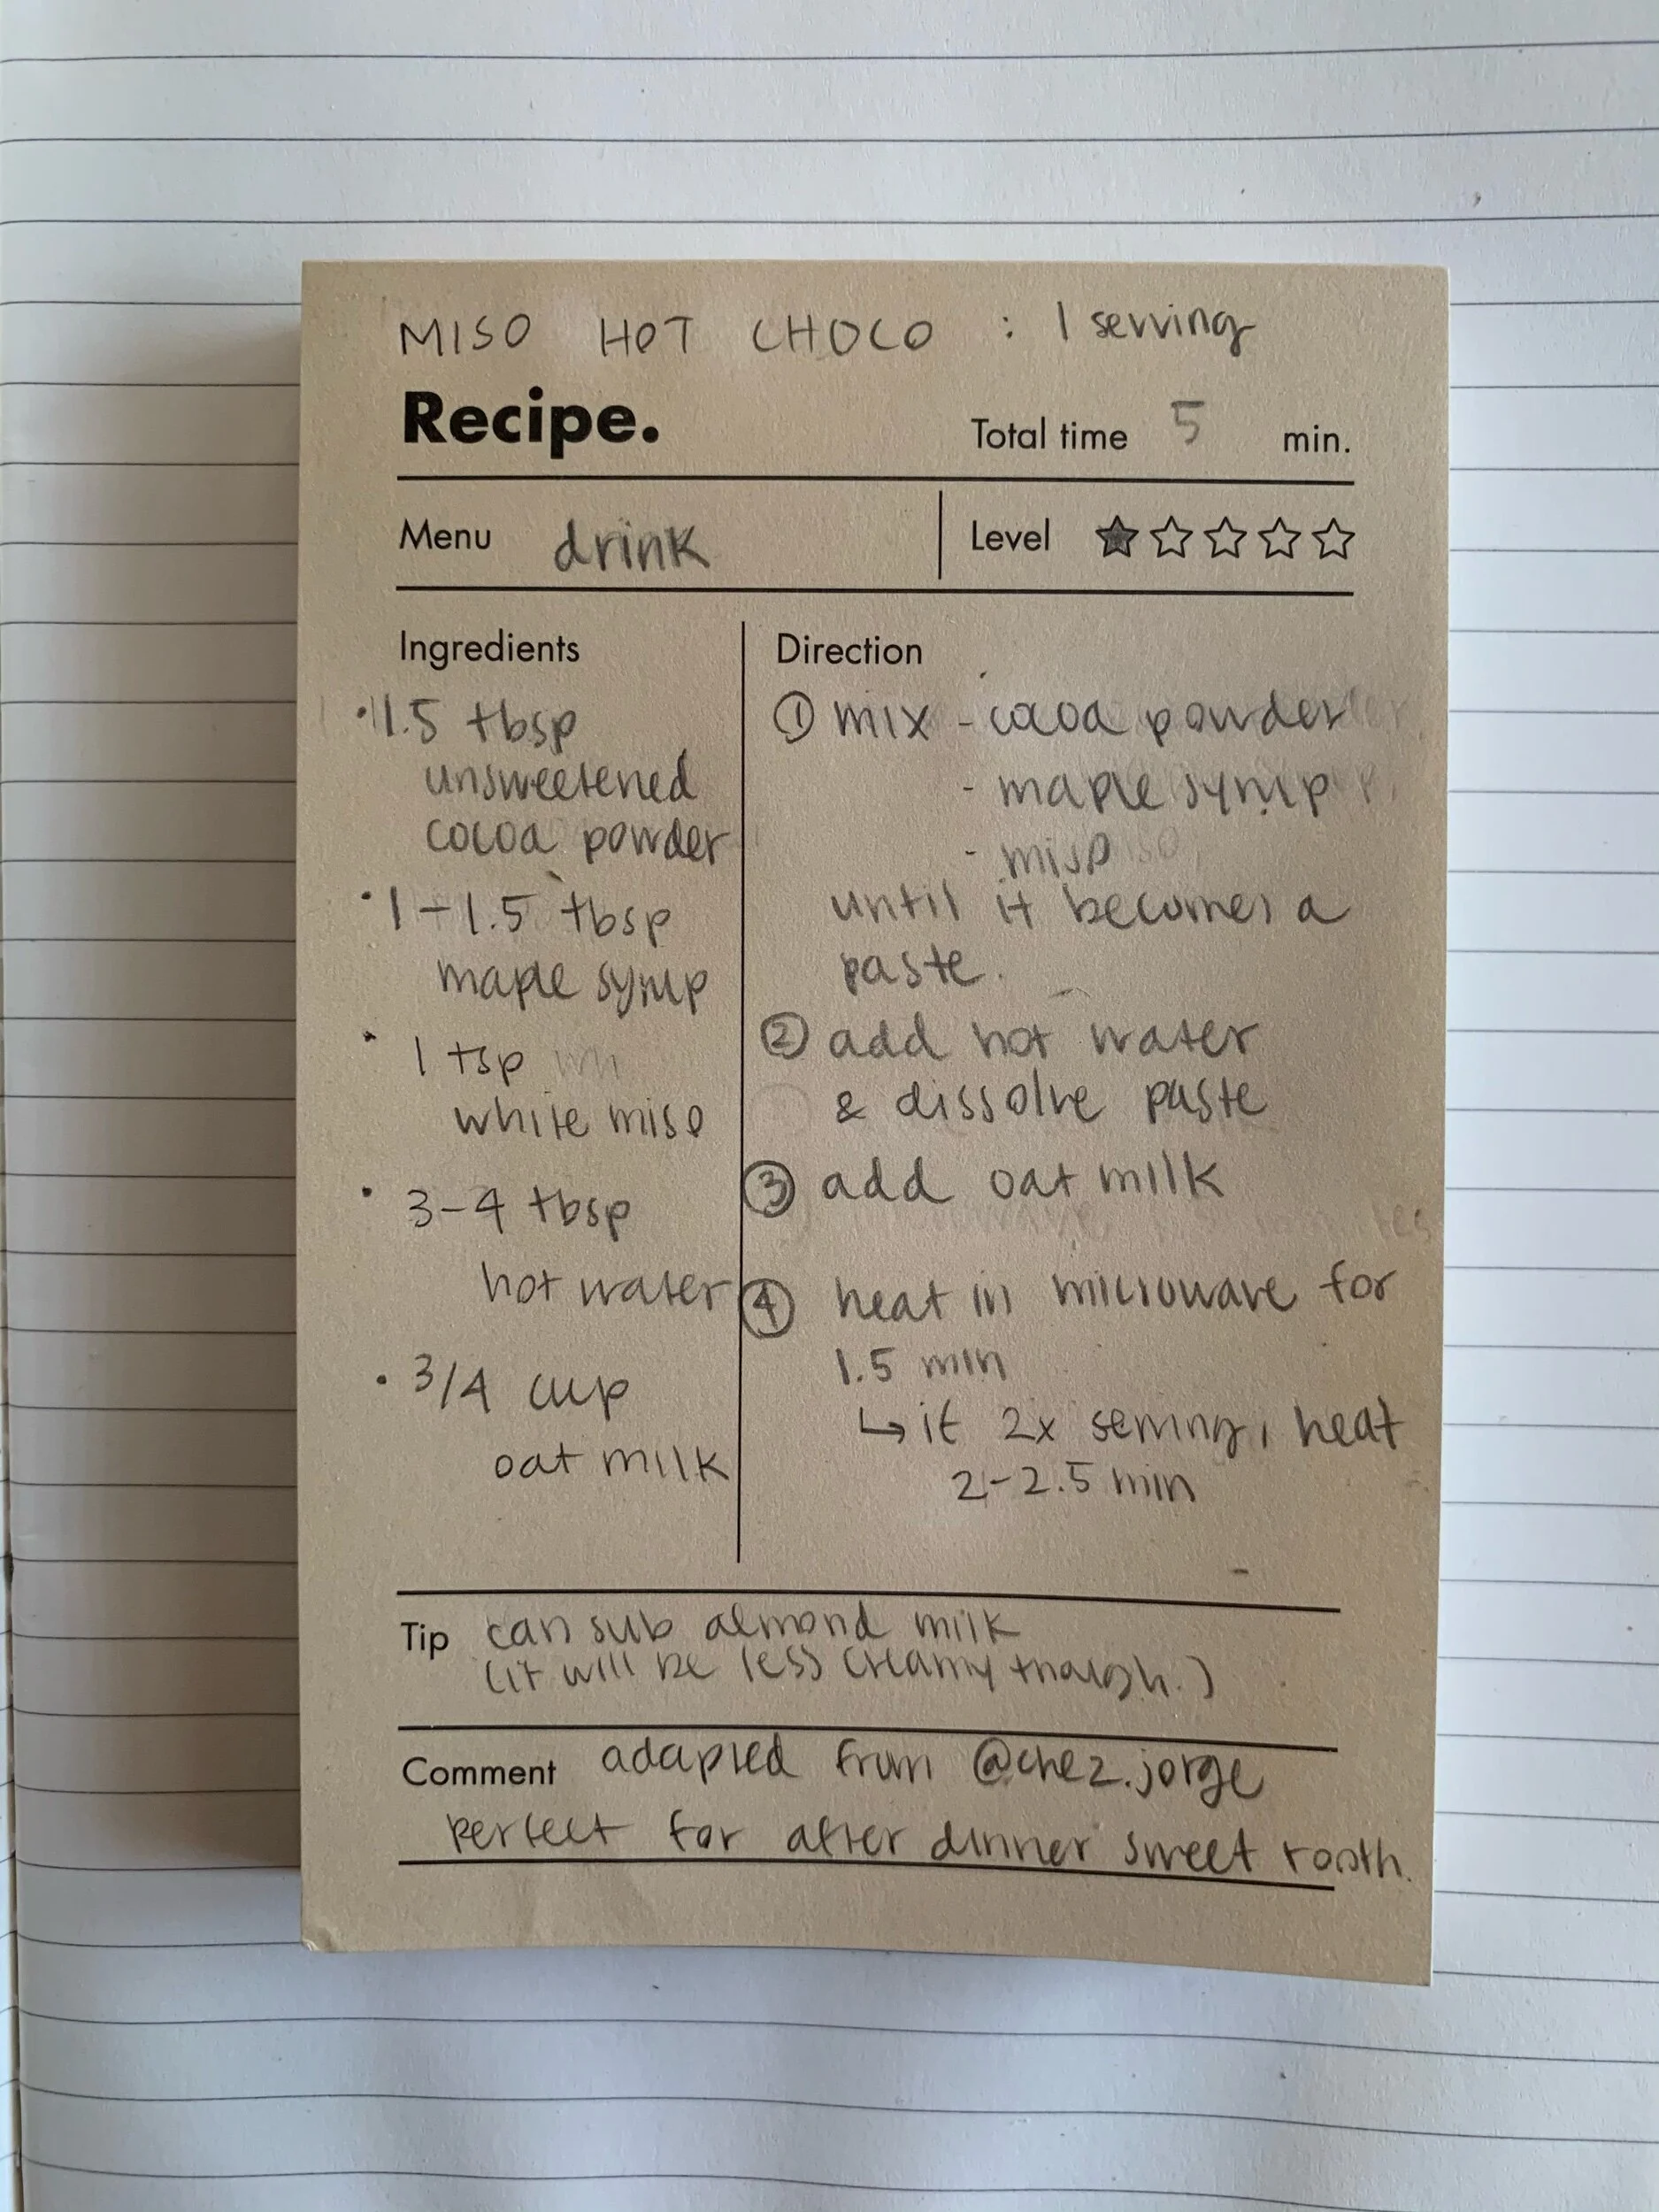 MISO HOT CHOCO : 1 serving
Recipe.
Total time 5 min.
Menu drink
Level
Ingredients
• 1.5 tbsp
unsweetened
cocoa powder
• 1-1.5 tbsp
maple syrup
• 1 tsp
white miso
• 3-4 tbsp
hot water
• 3/4 cup
oat milk
Direction
① mix - cocoa powder
- maple syrup
- miso
until it becomes a
paste.
② add hot water
& dissolve paste
③ add oat milk
④ heat in microwave for
1.5 min
↳ if 2x serving, heat
2-2.5 min
Tip can sub almond milk
(it will be less creamy though.)
Comment adapted from @chez.jorge
perfect for after dinner sweet tooth.